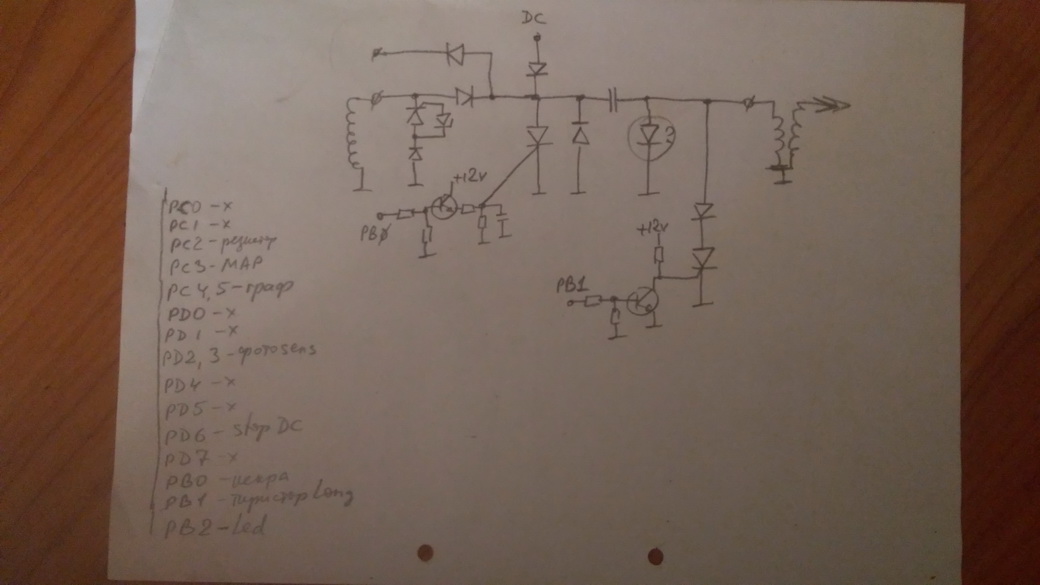 DC
+12v
PBØ
+12v
PB1
PC0 - x
PC1 - x
PC2 - резистр
PC3 - MAP
PC4,5 - граф
PD0 - x
PD1 - x
PD2, 3 - фотоsens
PD4 - x
PD5 - x
PD6 - stop DC
PD7 - x
PB0 - искра
PB1 - тиристор Long
PB2 - Led